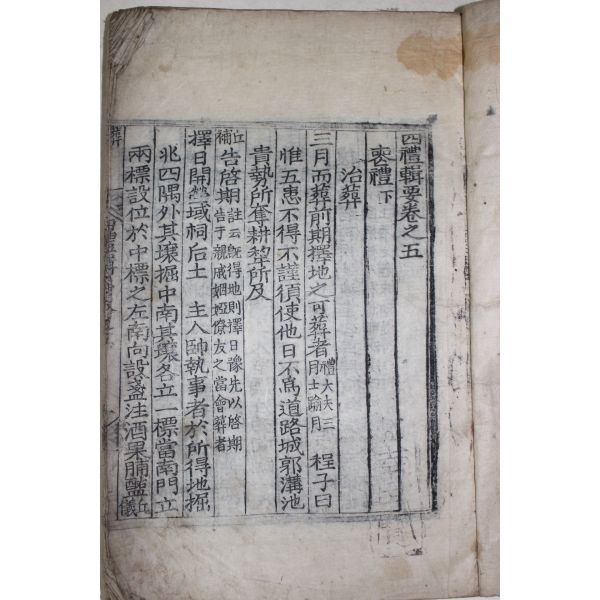 四禮輯要卷之五
喪禮下
治葬
三月而葬前期擇地之可葬者禮大夫三月士踰月 程子曰
惟五患不得不謹須使他日不爲道路城郭溝池
貴勢所奪耕犂所及
丘補告啓期註云旣得地則擇日豫先以啓期告于親戚姻婭僚友之當會葬者
擇日開塋域祠后土 主人帥執事者於所得地掘
兆四隅外其壤掘中南其壤各立一標當南門立
兩標設位於中標之左南向設盞注酒果脯醢丘儀